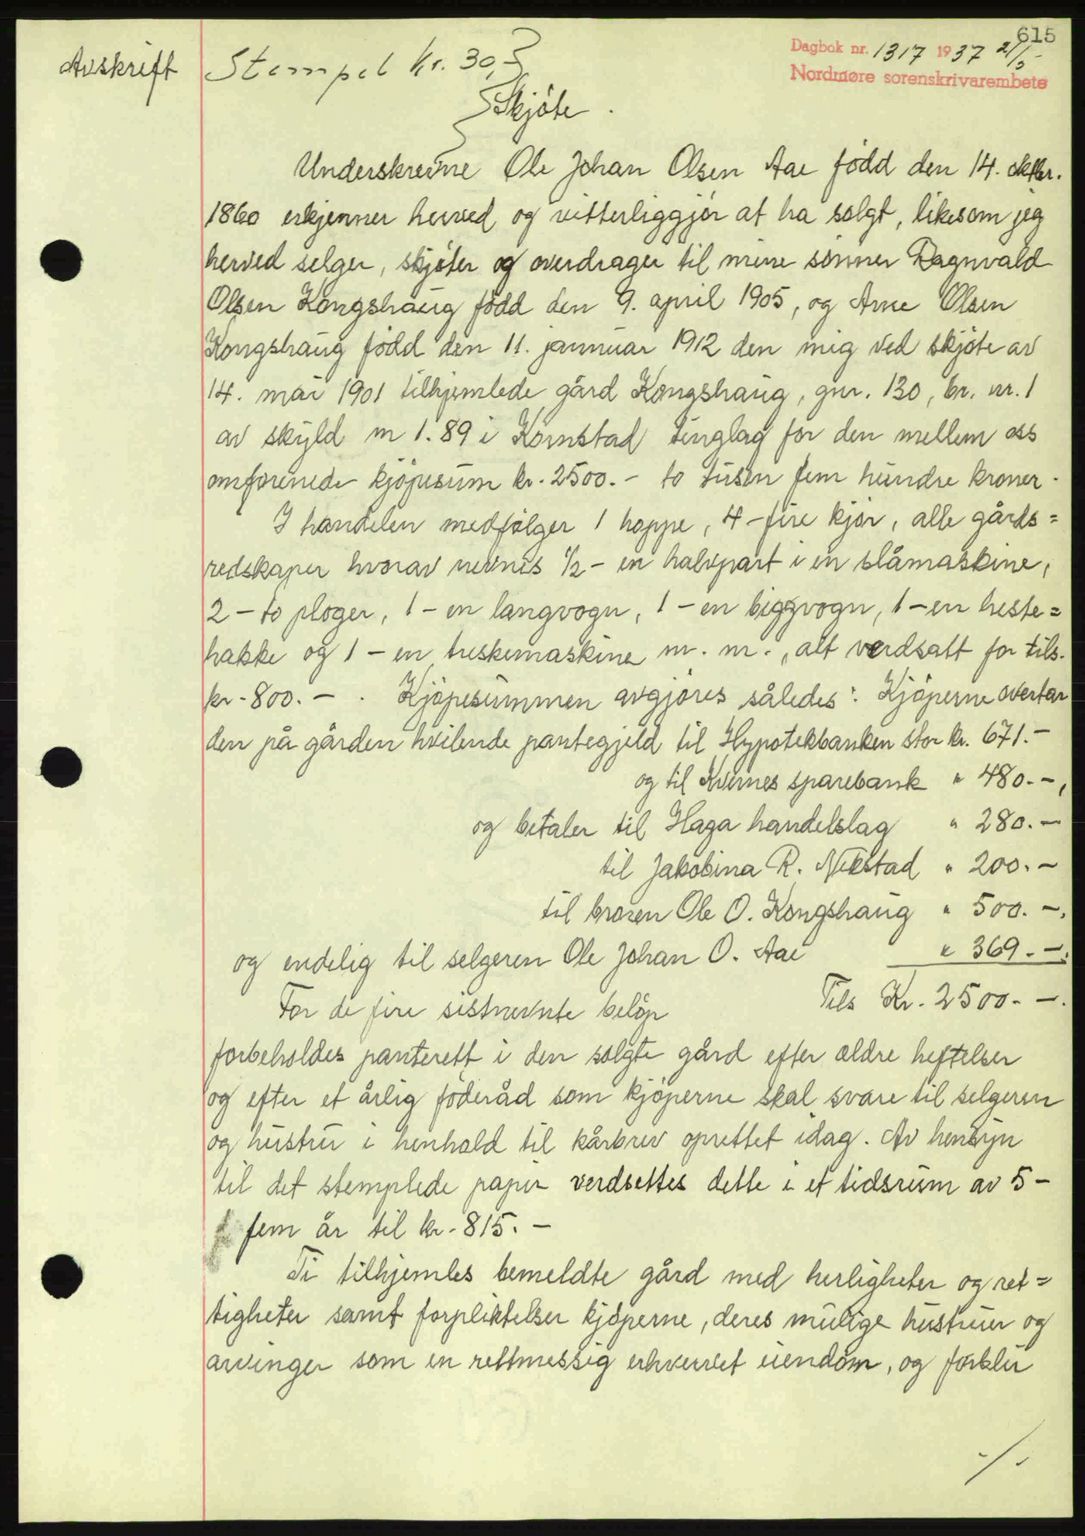 615
Dagbok nr. 1317 1937 21/5
Nordmøre sorenskrivarembete
Avskrift
Stempel kr. 30,
Skjöte.
Underskrevne Ole Johan Olsen Aae född den 14. oktbr.
1860 erkjenner herved og vitterliggjör at ha solgt, likesom jeg
herved selger, skjöter og overdrager til mine sönner Ragnvald
Olsen Kongshaug född den 9. april 1905, og Arne Olsen
Kongshaug född den 11. januar 1912 den mig ved skjöte av
14. mai 1901 tilhjemlede gård Kongshaug, gnr. 130, br. nr. 1
av skyld m 1.89 i Kornstad tinglag for den mellem oss
omforenede kjöpesum kr. 2500.- to tusen fem hundre kroner.
I handelen medfölger 1 hoppe, 4-fire kjör, alle gårds=
redskaper hvorav nevnes 1/2- en halvpart i en slåmaskine,
2-to ploger, 1-en langvogn, 1-en biggvogn, 1-en heste=
hakke og 1-en treskemaskine m. m., alt verdsatt for tils.
kr. 800.-. Kjöpesummen avgjöres således: Kjöperne overtar
den på gården hvilende pantegjeld til Hypotekbanken stor kr. 671.-
og til Kvernes sparebank " 480.-,
og betaler til Haga handelslag " 280.-
til Jakobina R. Nekstad " 200.-
til broren Ole O. Kongshaug " 500.-.
og endelig til selgeren Ole Johan O. Aae " 369.-.
For de fire sistnevnte belöp Tils Kr. 2500.-.
forbeholdes panterett i den solgte gård efter ældre heftelser
og efter et årlig föderåd som kjöperne skal svare til selgeren
og hustru i henhold til kårbrev oprettet idag. Av hensyn
til det stemplede papir verdsettes dette i et tidsrum av 5-
fem år til kr. 815.-
Ti tilhjemles bemeldte gård med herligheter og ret=
tigheter samt forpliktelser kjöperne, deres mulige hustruer og
arvinger som en rettmessig erhvervet eiendom, og forblir
./.